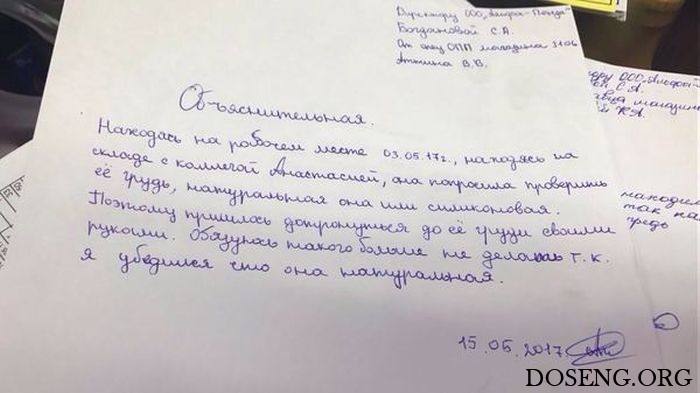 Директору ООО „Альфа-Пента"
Богдановой С.А.
От спец ОПП магазина 3106
Аткина В.В.
Объяснительная.
Находясь на рабочем месте 03.05.17г., находясь на
складе с коллегой Анастасией, она попросила проверить
её грудь, натуральная она или силиконовая.
Поэтому пришлось дотронуться до её груди своими
руками. Обязуюсь такого больше не делать т.к.
я убедился что она натуральная.
15.05.2017
ООО „Альфа-
С.А.
магазина
находи
так на
грудь
DOSENG.ORG